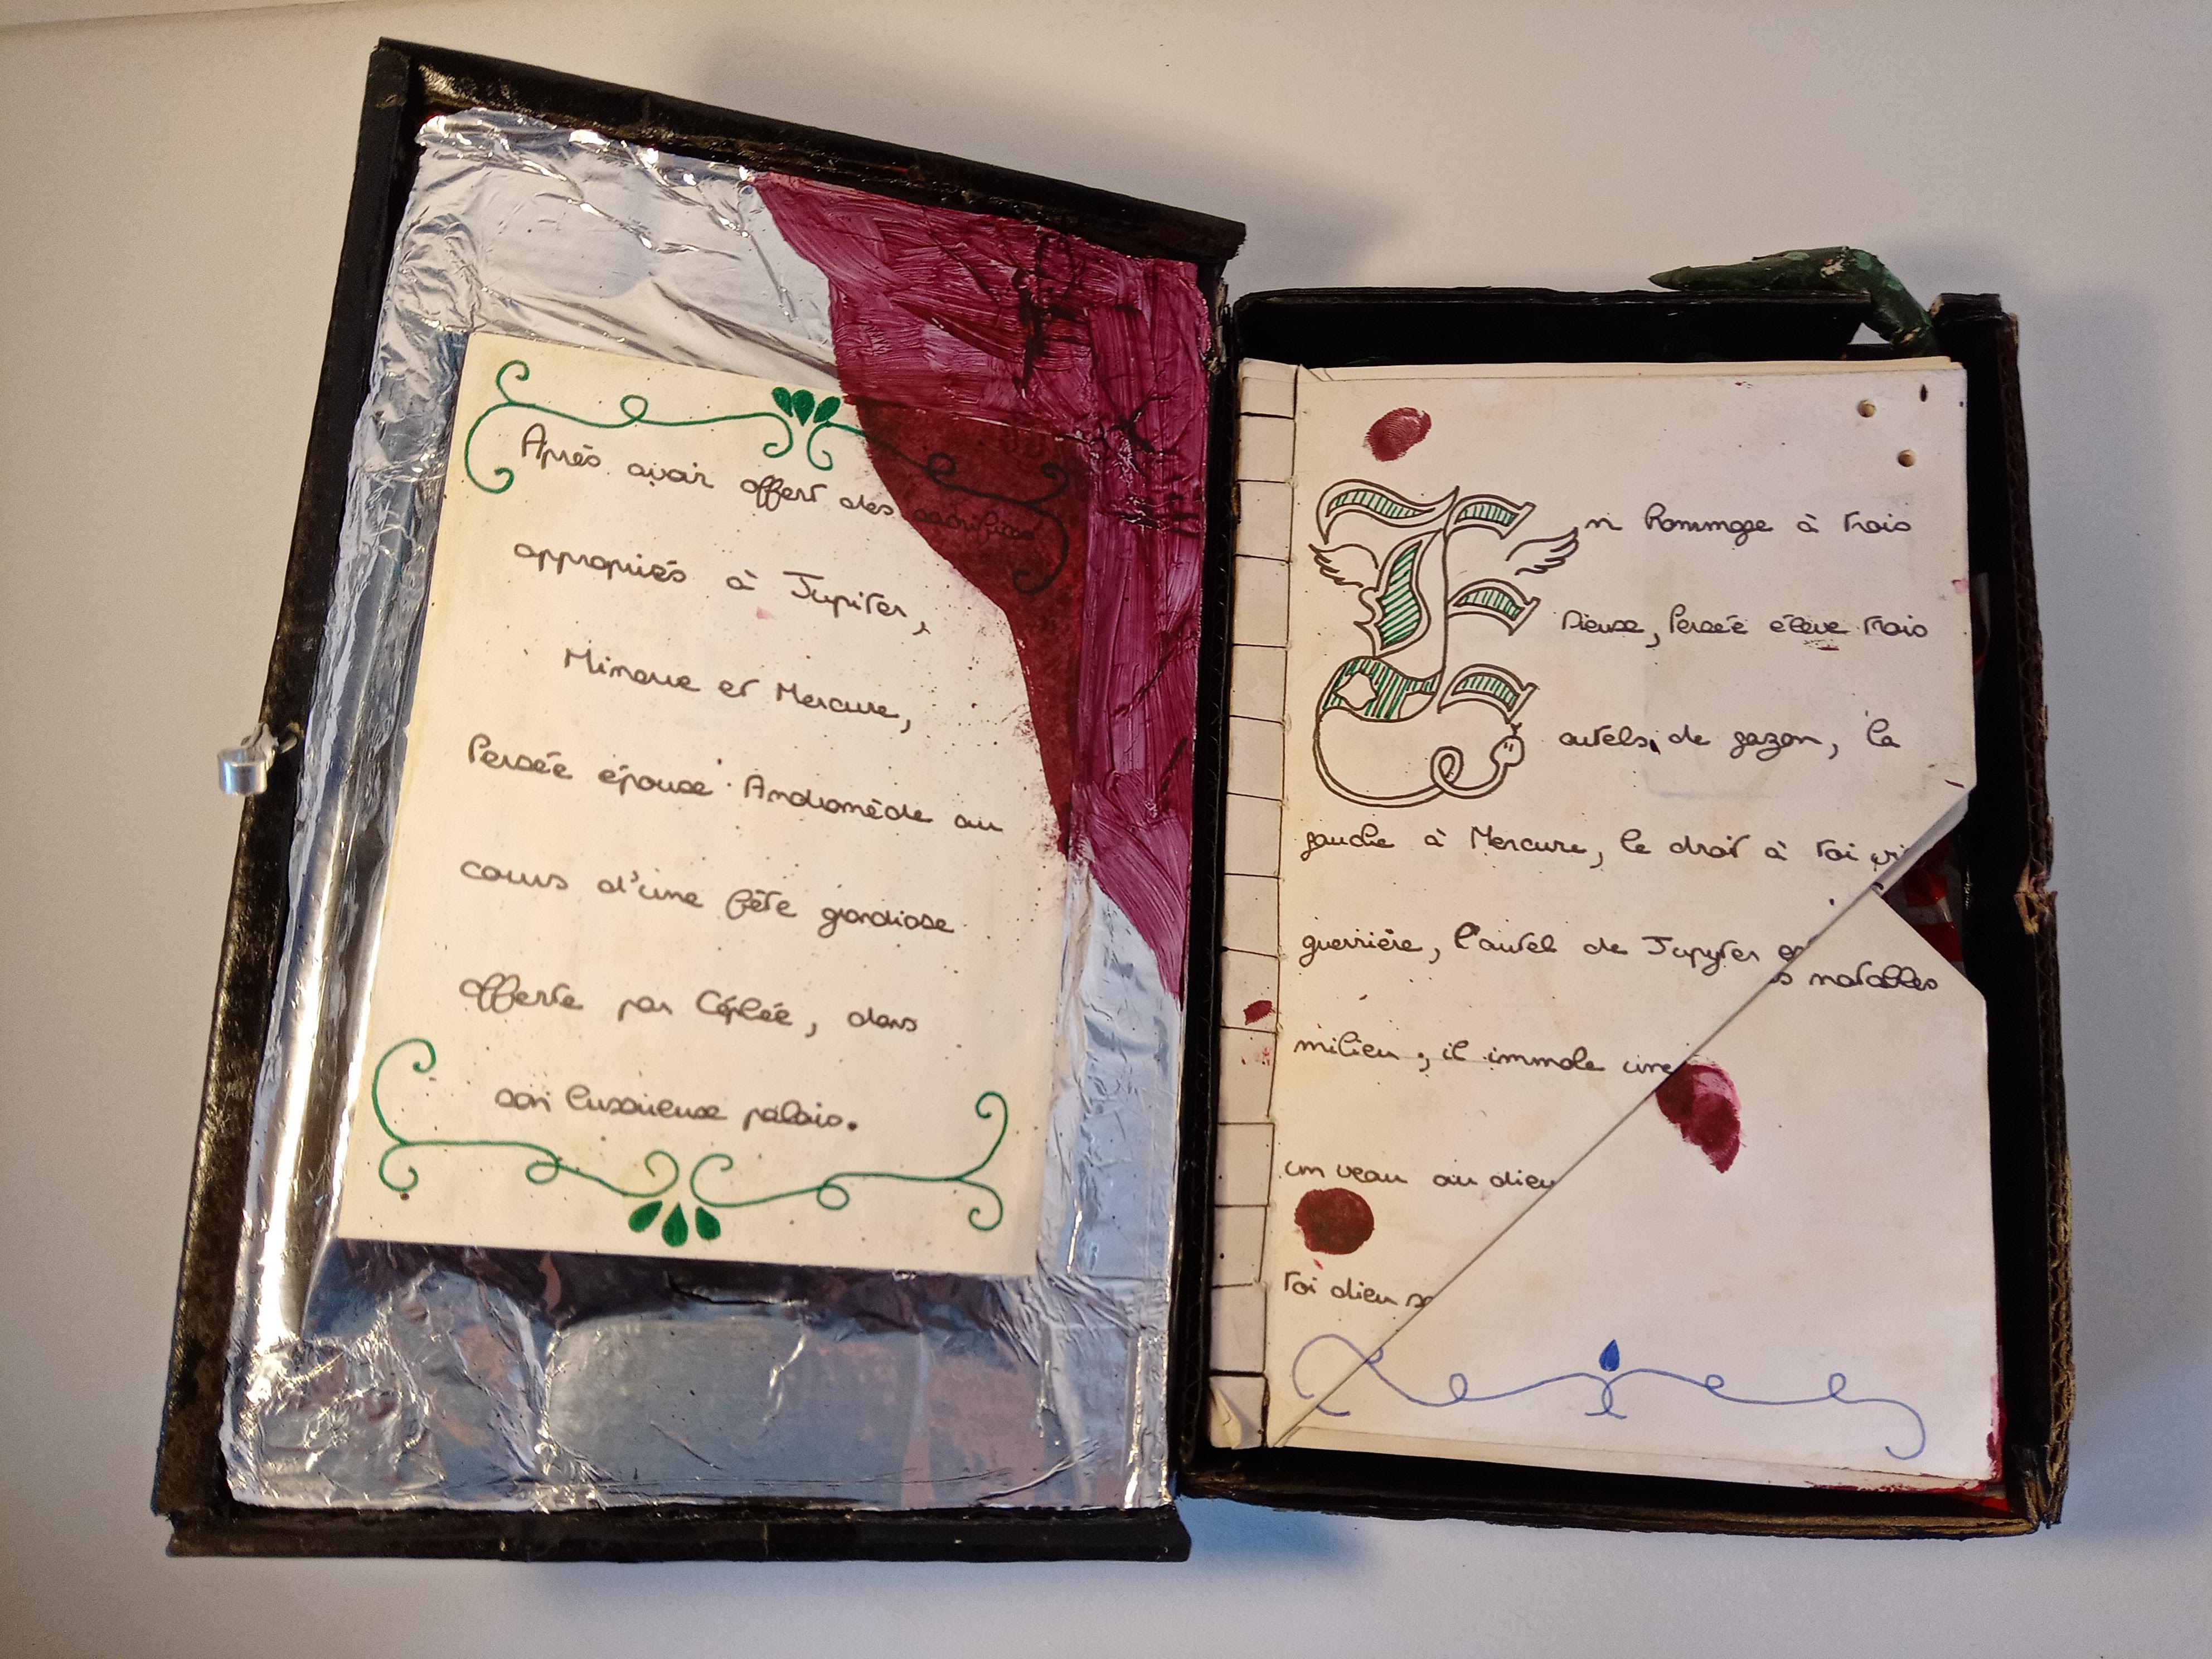 Après avoir offert des sacrifices
appropriés à Jupiter,
Minerve et Mercure,
Persée épouse Andromède au
cours d'une fête grandiose
offerte par Céphée, dans
son luxueuse palais.
En hommage à trois
Dieux, Persée élève trois
autels de gazon, le
gauche à Mercure, le droit à toi
guerrière, l'autel de Jupyter
notables
milieu, il immole une
un veau au dieu
toi dieu